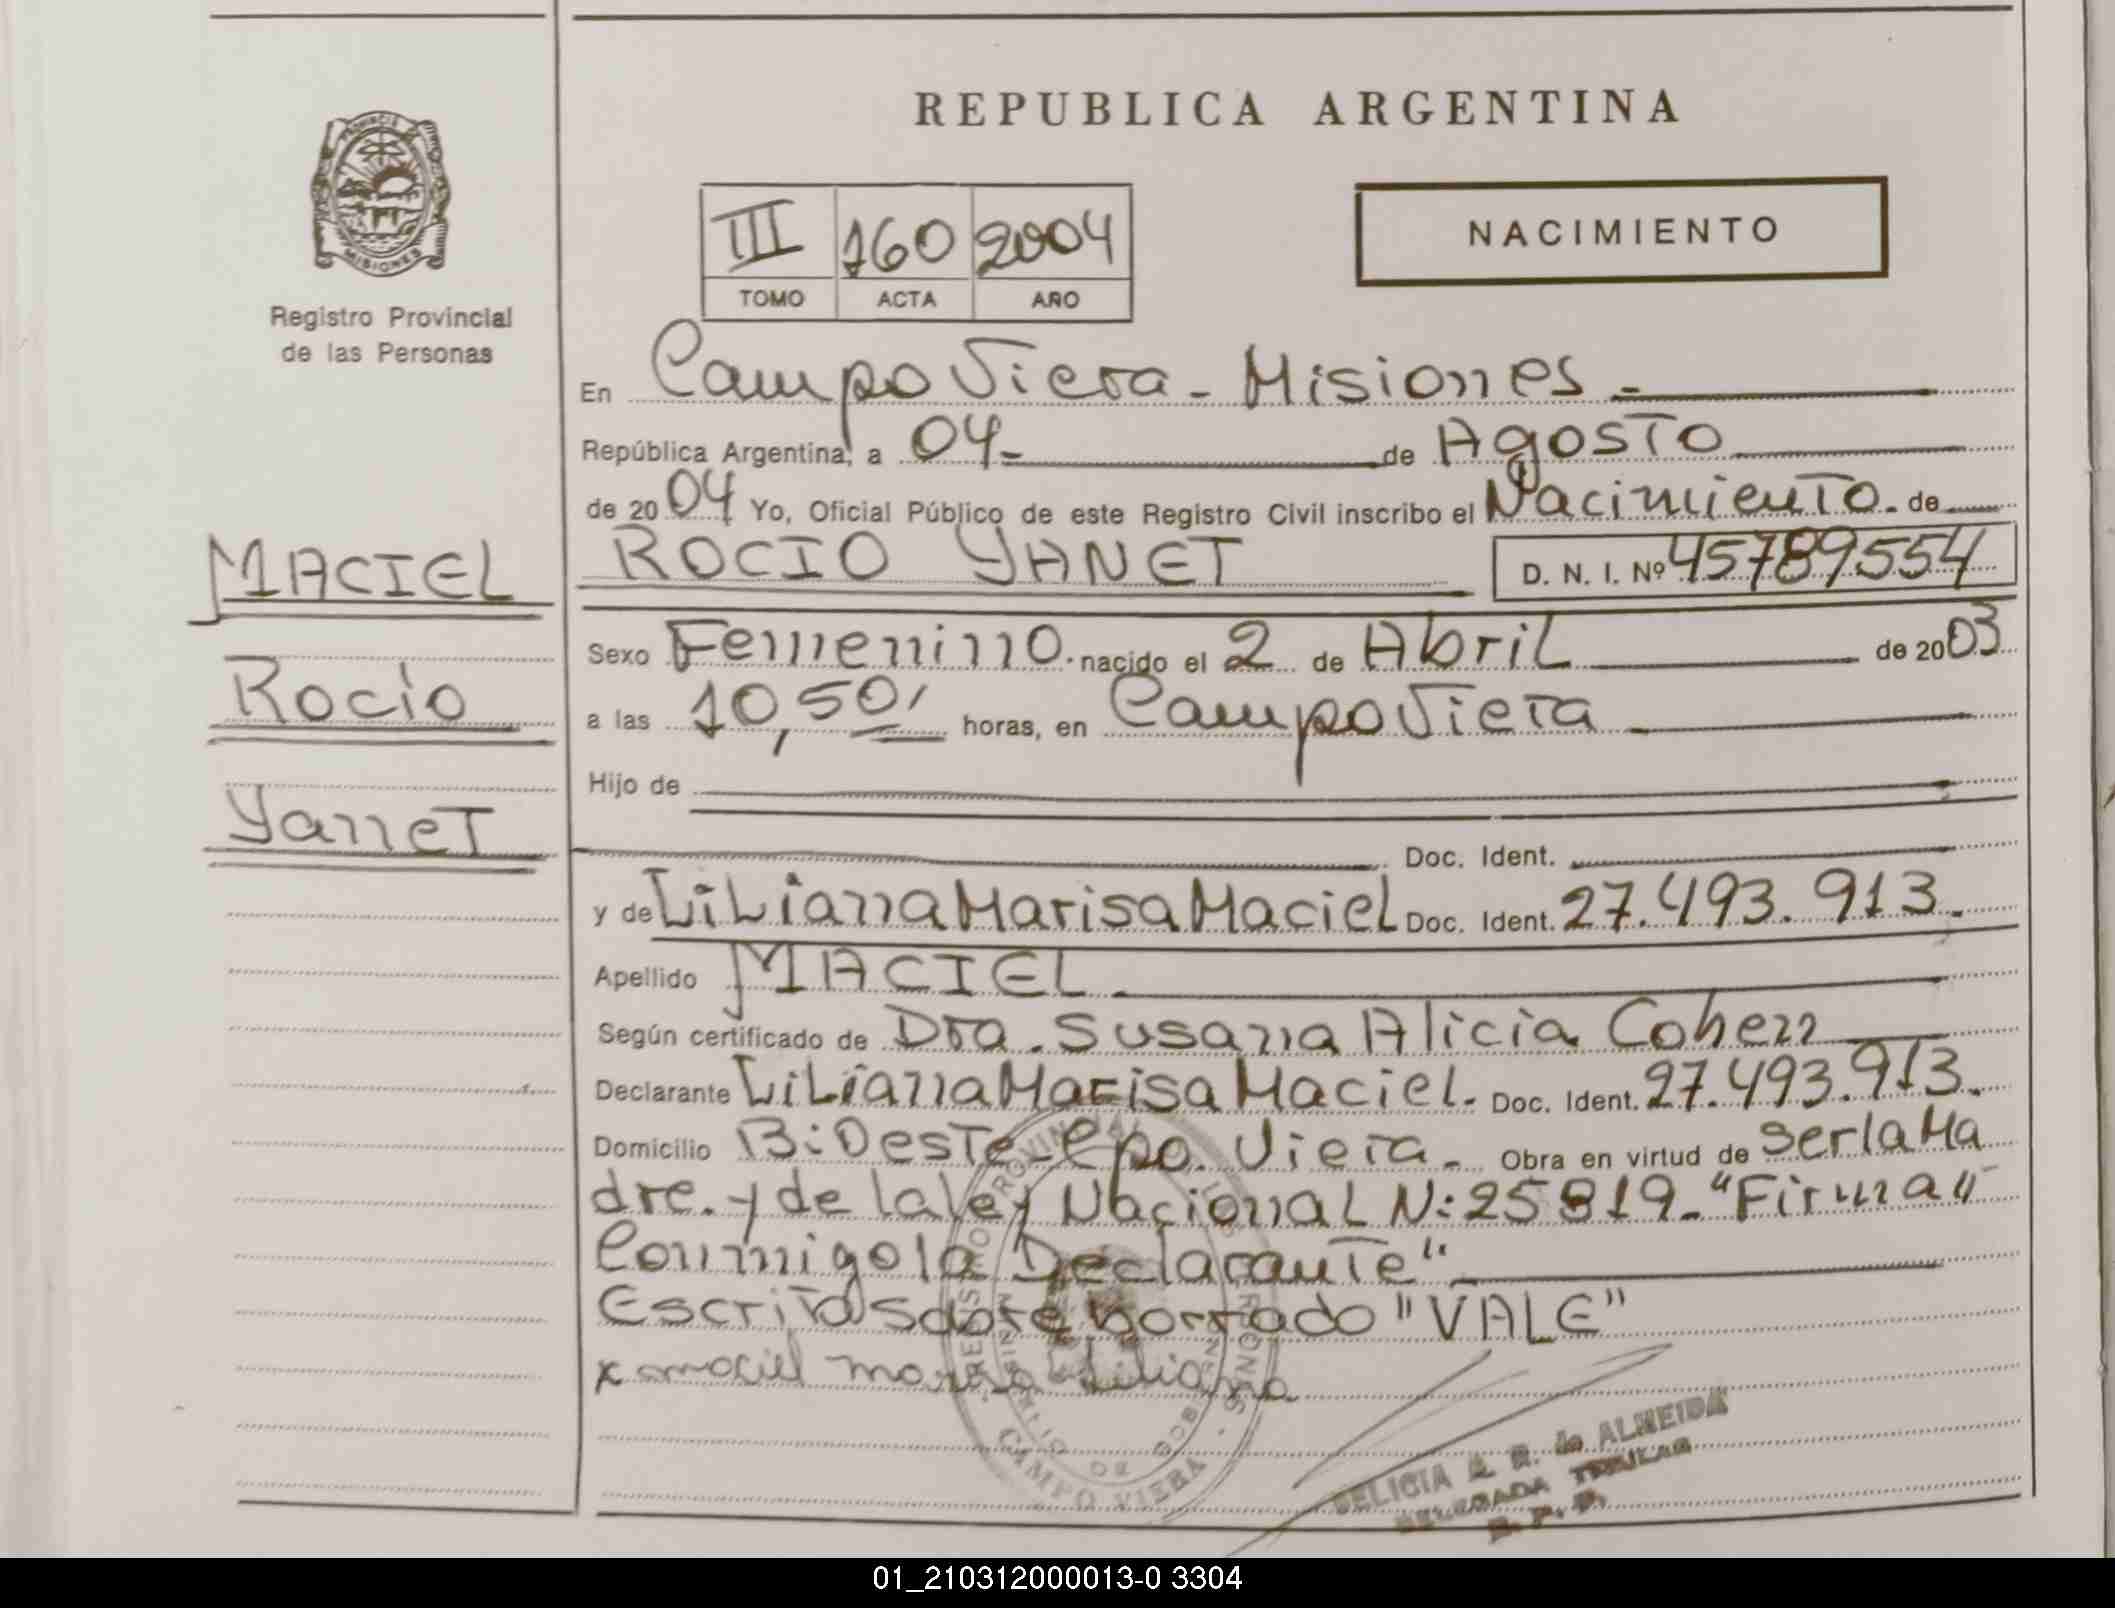 REPUBLICA ARGENTINA
PROVINCIA DE
MISIONES
Registro Provincial
de las Personas
III 160 2004
TOMO ACTA AÑO
NACIMIENTO
En Campo Viera - Misiones -
República Argentina, a 04 - de Agosto
de 2004 Yo, Oficial Público de este Registro Civil inscribo el Nacimiento. de
MACIEL
Rocío
Yanet
ROCIO YANET D. N. I. Nº 45789554
Sexo Femenino. nacido el 2 de Abril de 2003
a las 10,50' horas, en Campo Viera
Hijo de
Doc. Ident.
y de Liliana Marisa Maciel Doc. Ident. 27.493.913.
Apellido MACIEL.
Según certificado de Dra. Susana Alicia Cohen
Declarante Liliana Marisa Maciel. Doc. Ident. 27.493.913.
Domicilio B: Oeste - Cpo. Viera. Obra en virtud de ser la Ma
dre. y de la ley Nacional N: 25819 - "Firma"
Conmigo la Declarante"
Escrito sobre borrado "VALE"
x maciel marisa liliana
CAMPO VIERA
FELICIA A. R. de ALMEIDA
DELEGADA TITULAR
R. P. P.
01_210312000013-0 3304